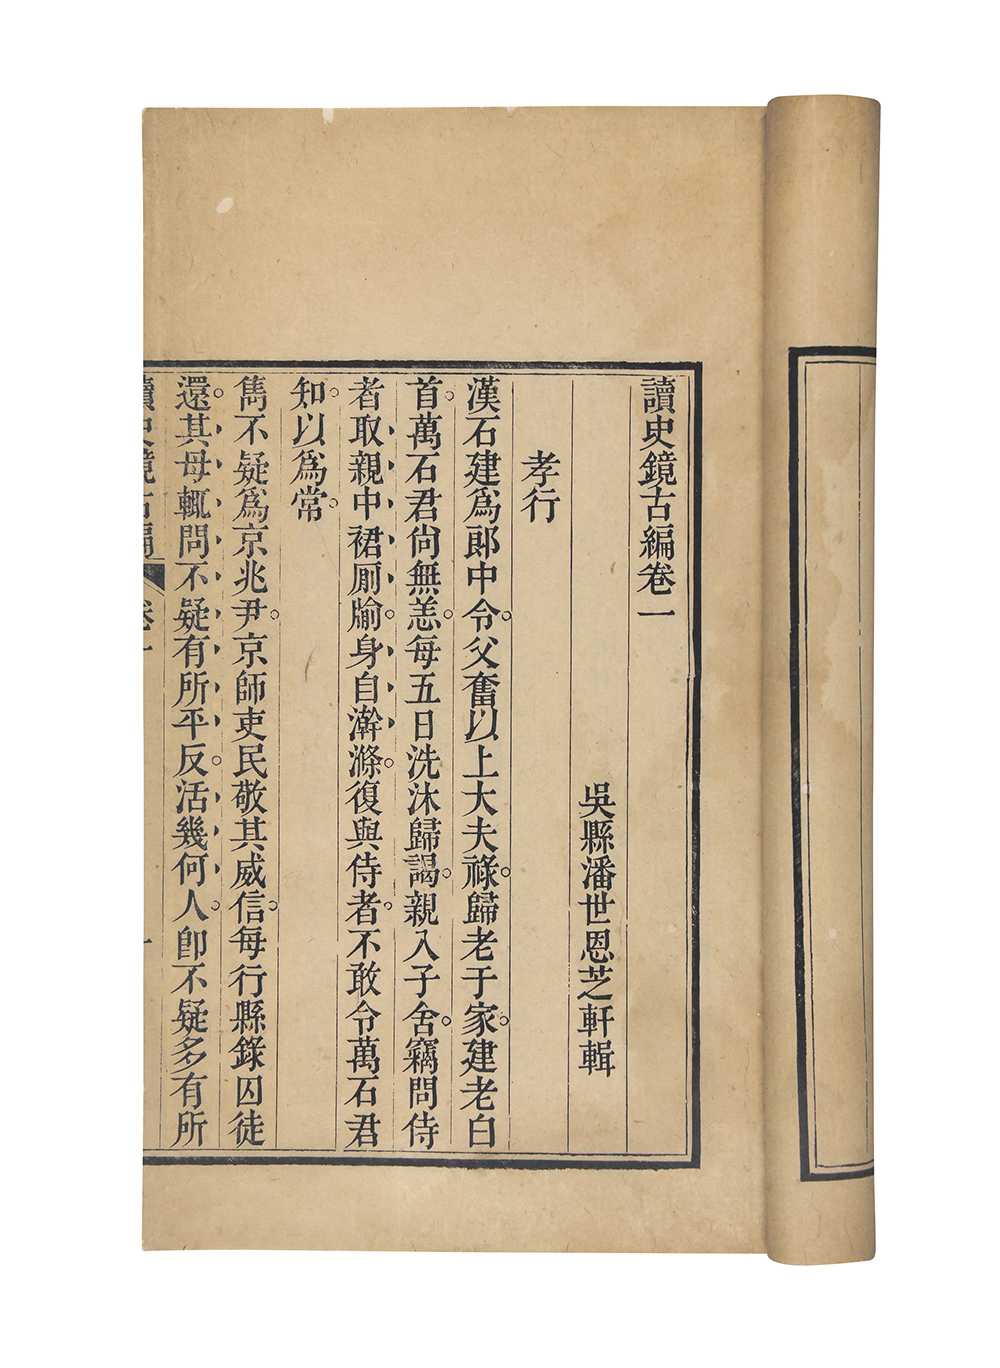 讀史鏡古編卷一
吳縣潘世恩芝軒輯
孝行
漢石建爲郎中令。父奮以上大夫祿。歸老于家。建老白
首。萬石君尙無恙。每五日洗沐歸謁。親入子舍。竊問侍
者取親中裙厠牏。身自澣滌。復與侍者。不敢令萬石君
知。以爲常。
雋不疑爲京兆尹。京師吏民敬其威信。每行縣錄囚徒
還。其母輒問不疑有所平反。活幾何人。卽不疑多有所
讀史鏡古編 卷一 一